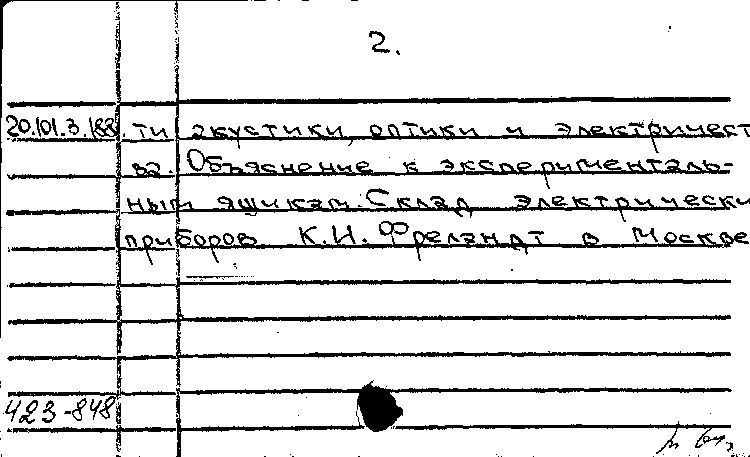 2.
20.101.3.188. ти акустики, оптики и электричест
ва. Объяснение к эксперименталь-
ным ящикам. Склад электрически
приборов К.И. Фреландт в Москве
423-848